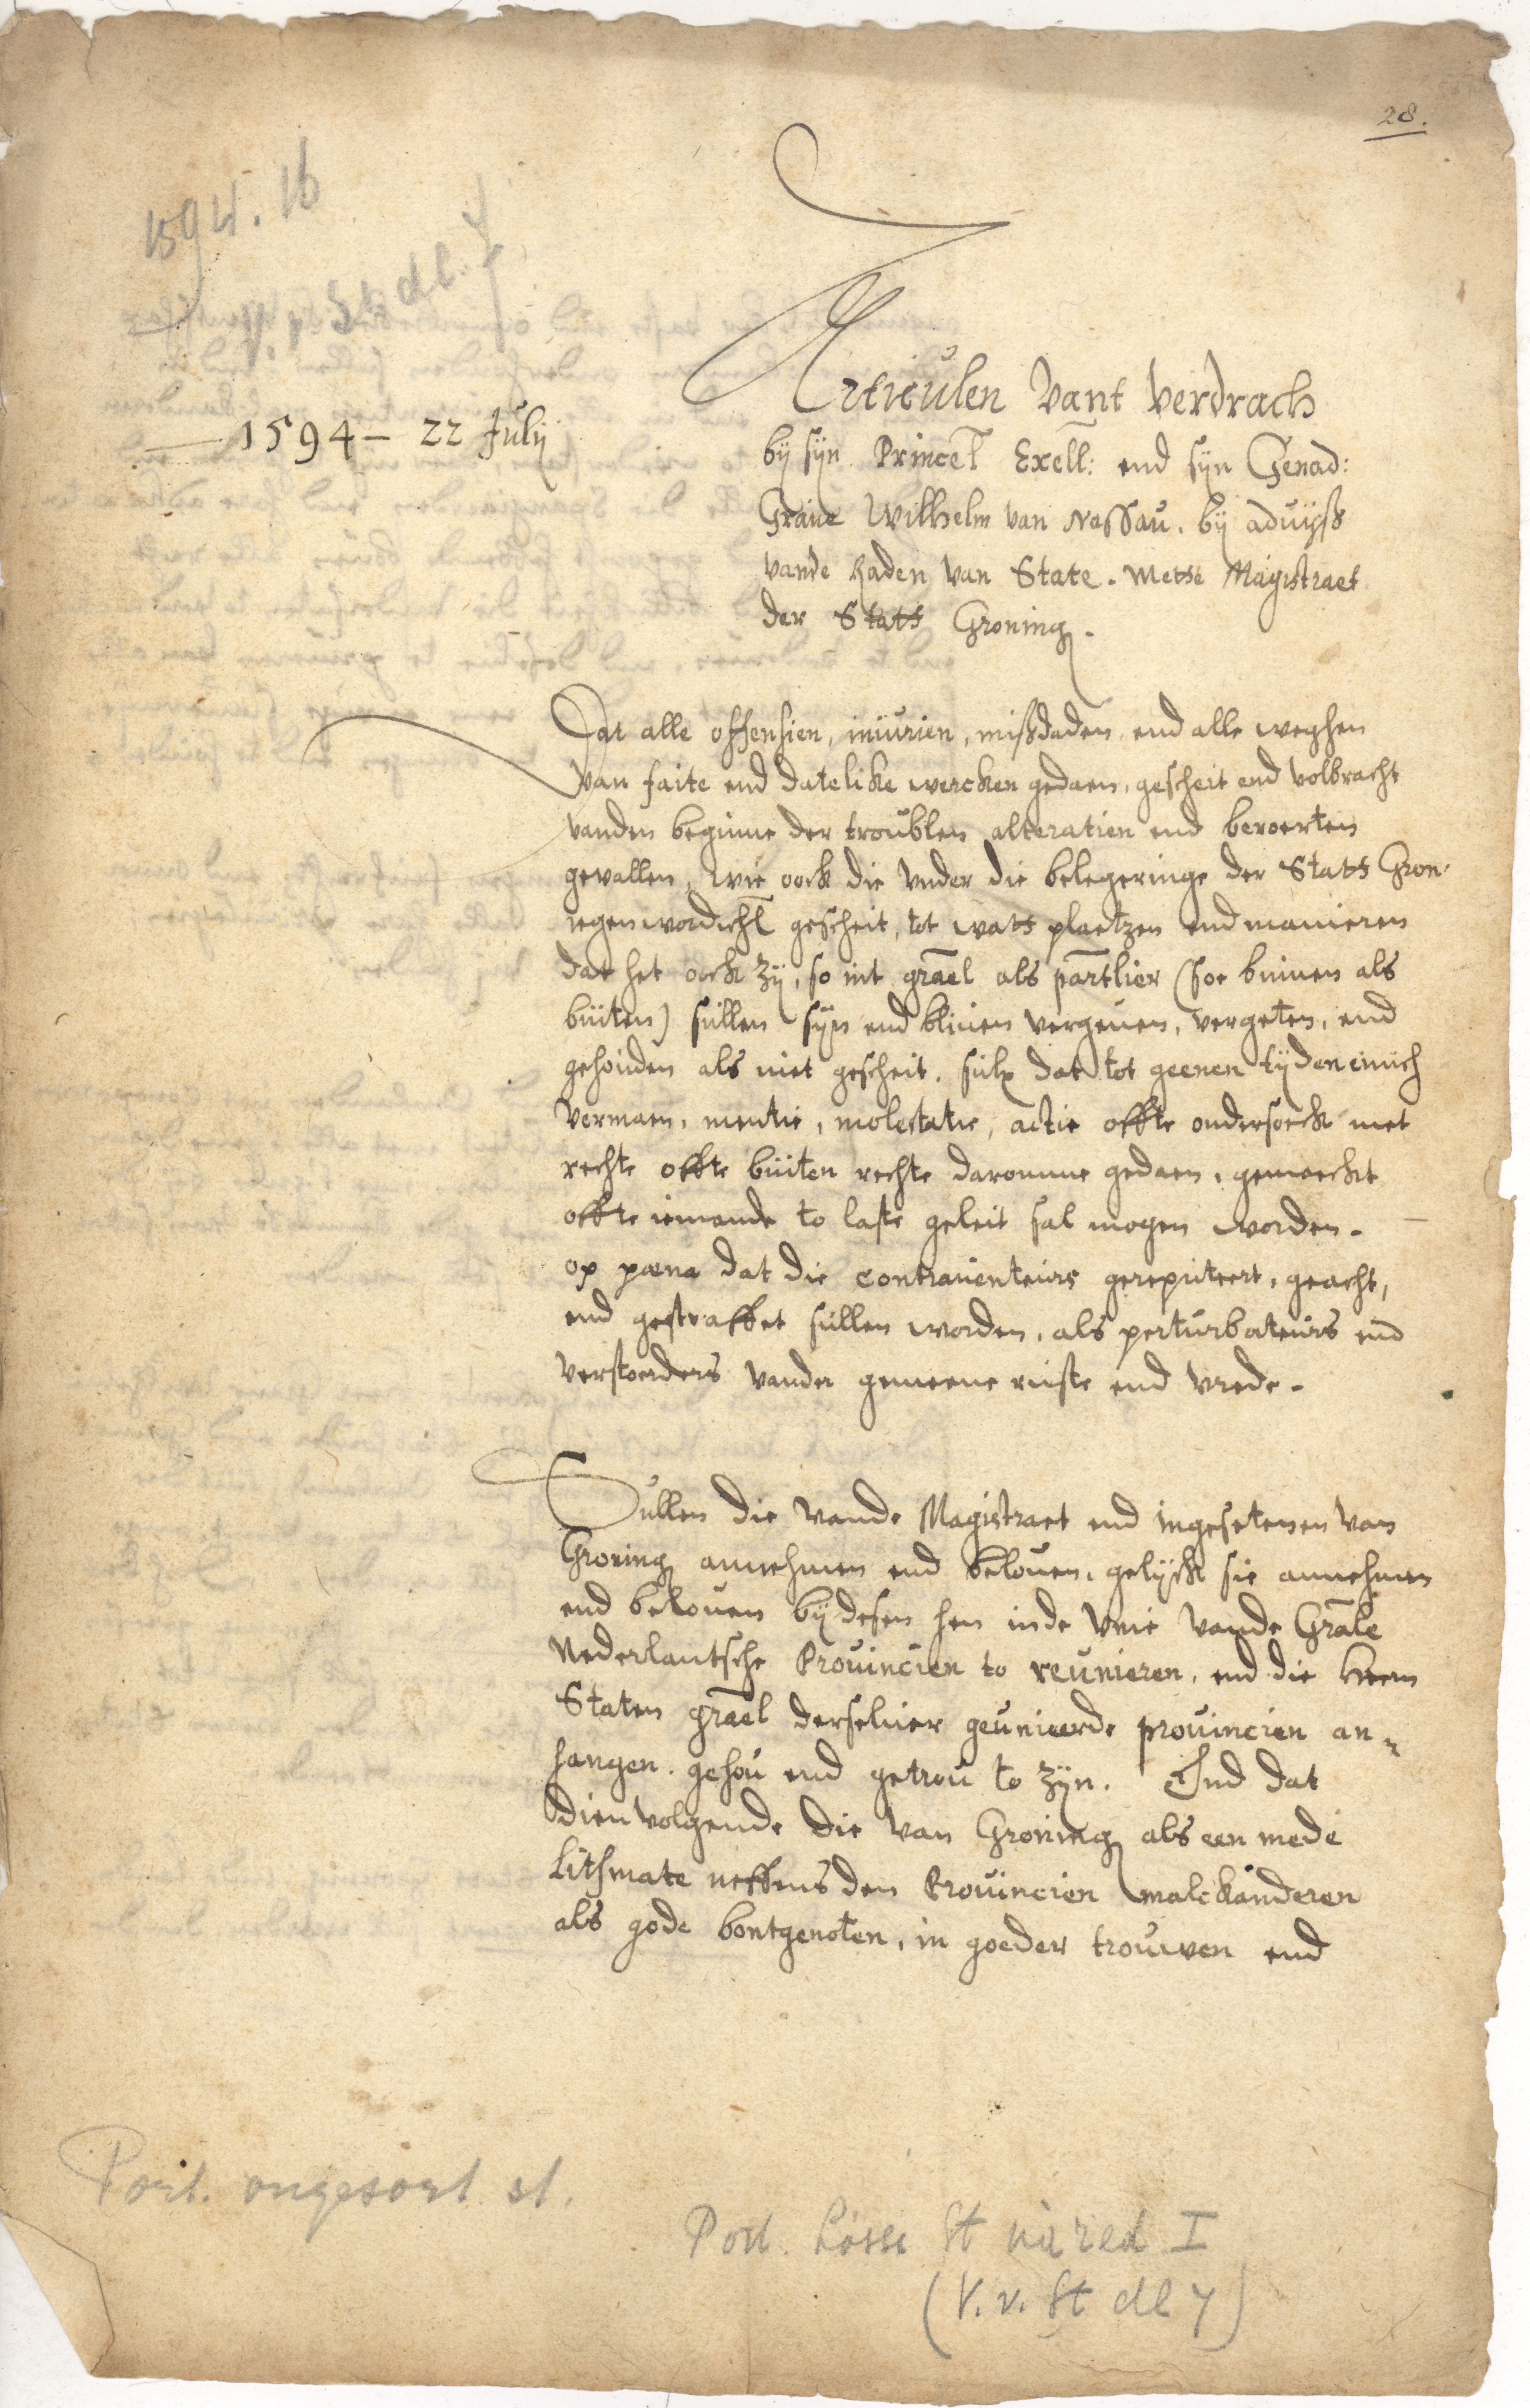 28.
1594. 16
V. v. St. dl. 7
1594 - 22 Julij
Articulen vant verdrach
bij sijn Princel Exell: end sijn Genad:
Graue Wilhelm van Nassau. bij aduijß
vande Raden van State. Metde Magistraet
der Stadt Groning.
Dat alle offensien, iniurien, mißdaden, end alle weghen
van faite end datelike wercken gedaen, gescheit end volbracht
vanden beginne der troublen alteratien end beroerten
gevallen, wie oock die vnder die belegeringe der Stadt Gron.
iegenwordichl gescheit, tot wats plaetzen end manieren
dat het oock zij, so int gräel als partlier (soe binnen als
buiten) sullen sijn end bliuen vergeuen, vergeten, end
gehouden als niet gescheit. sulx dat tot geenen tijden einich
vermaen, mentie, molestatie, actie offte ondersoeck met
rechte offte buiten rechte daromme gedaen, gemaeckt
offte iemande to laste geleit sal mogen worden.
op pœna dat die contrauenteurs gereputeert, geacht,
end gestraffet sullen worden, als perturbateurs end
verstoerders vander gemeene ruste end vrede.
Sullen die vande Magistraet end ingesetenen van
Groning annehmen end belouen, gelijck sie annehmen
end belouen bij desen hen inde Vnie vande Grale
Nederlantsche Prouincien to reunieren, end die heern
Staten gräel derseluer geunieerde prouincien an=
hangen. gehou end getrou to zijn. End dat
dien volgende die van Groning als een mede
Lithmate neffens den Prouincien malckanderen
als gode bontgenoten, in goeder trouwen end
Port. ongesort. st.
Port. Losse St. I
(V. v. St dl 7)